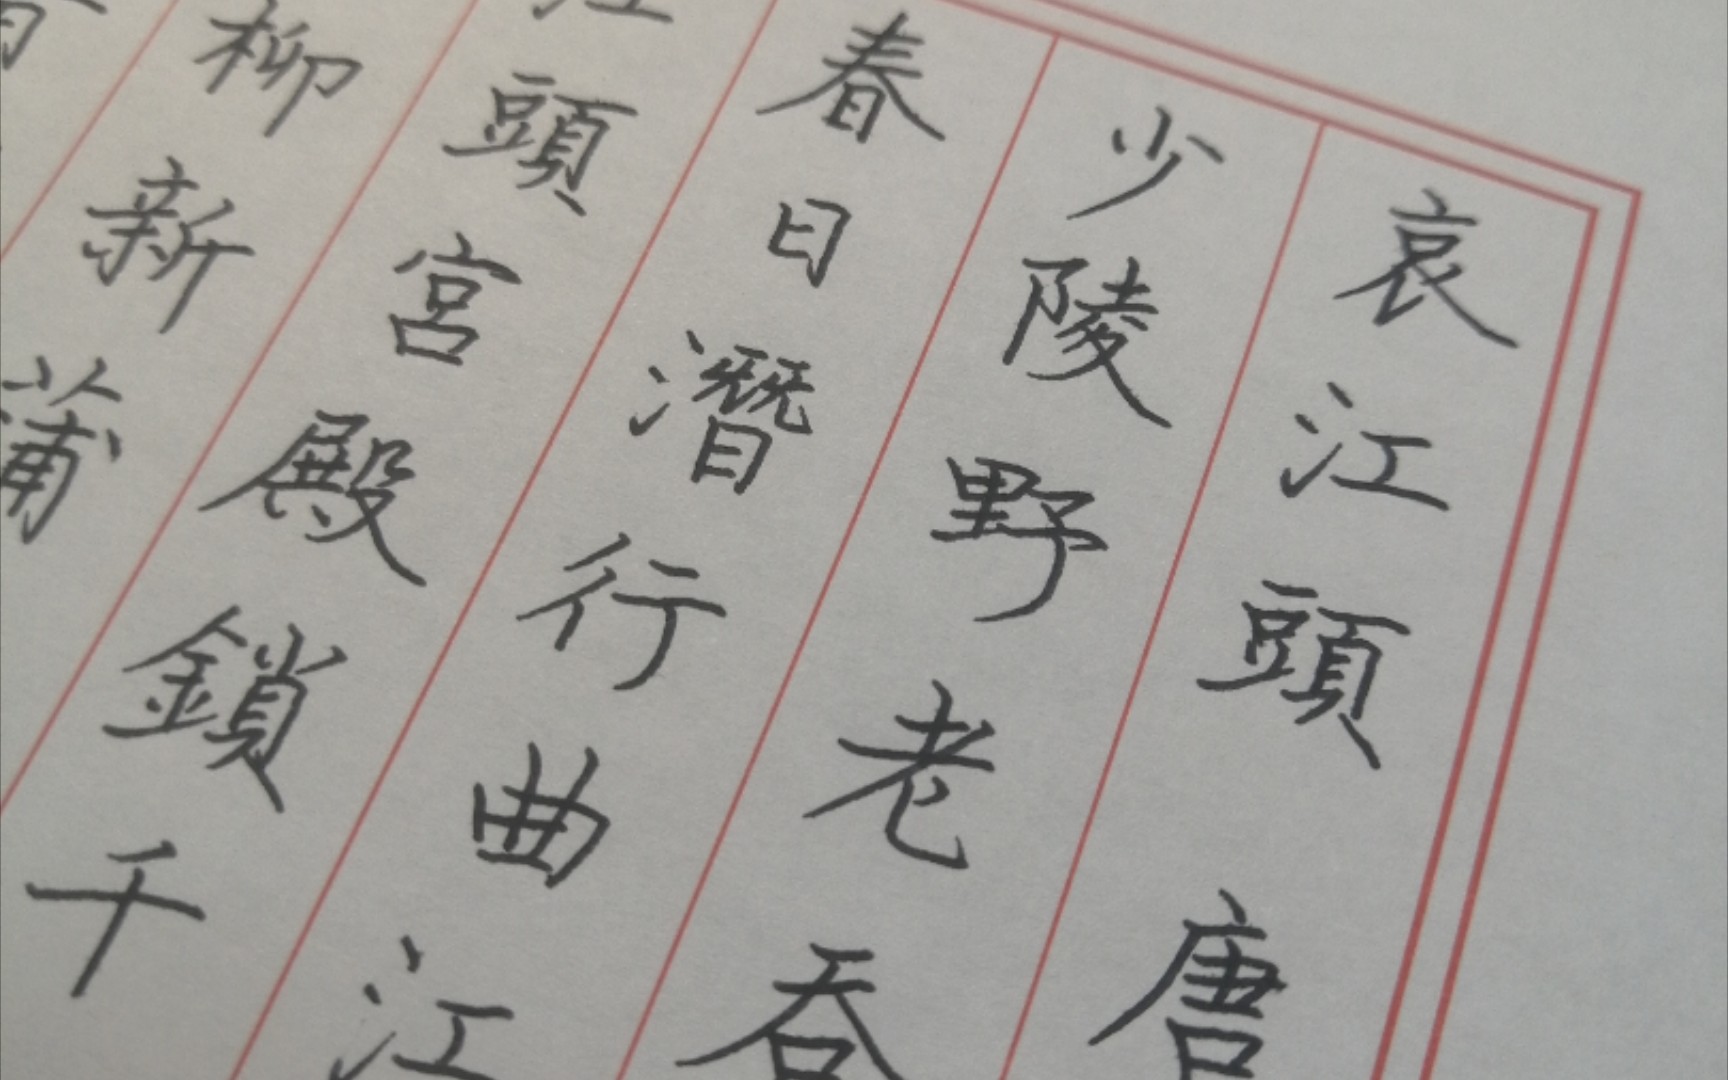 哀江頭 唐
少陵野老吞
春日潛行曲江
江頭宮殿鎖千
柳新蒲